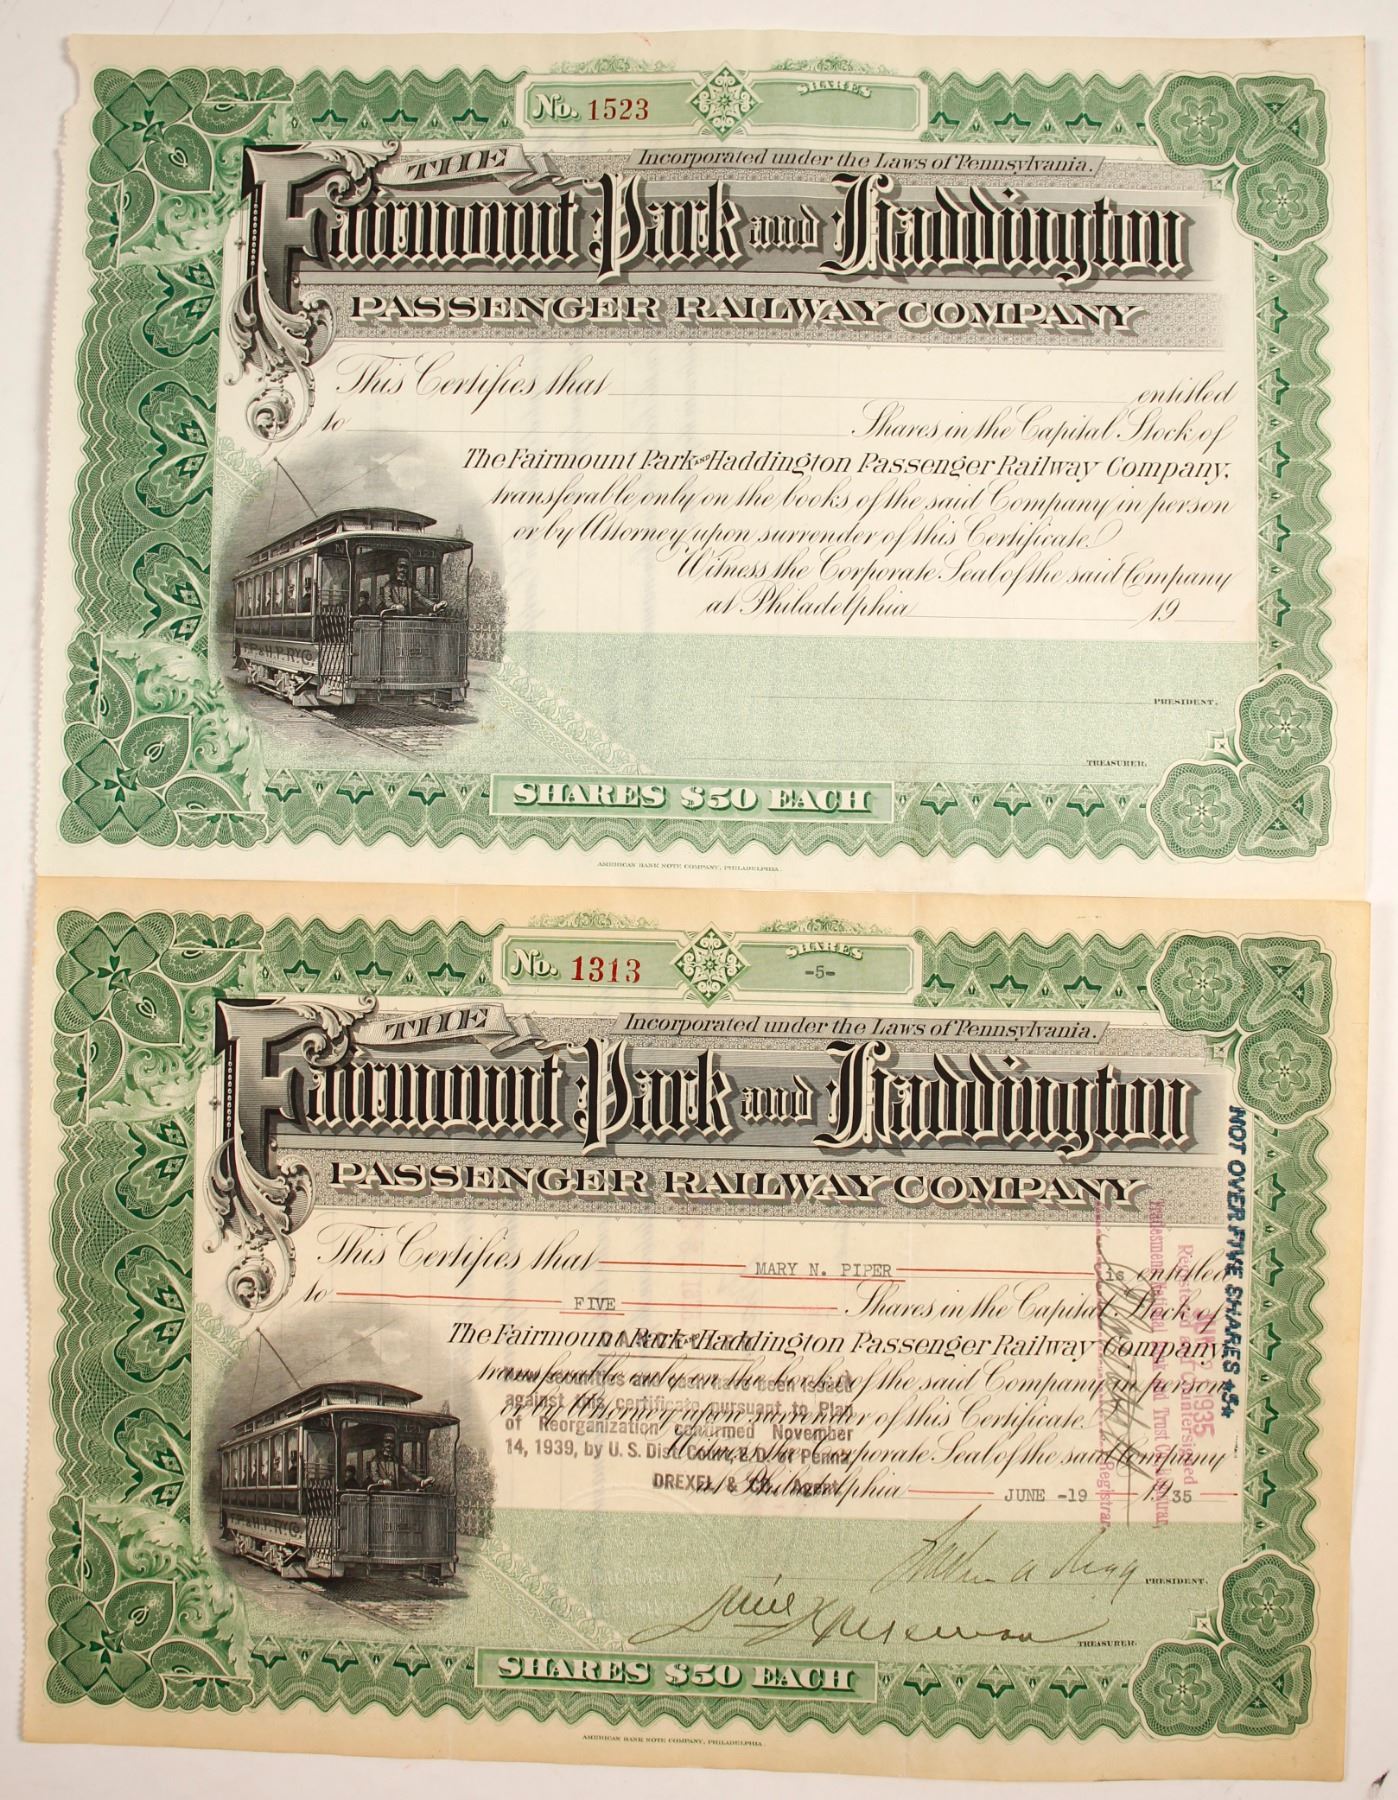 No. 1523
SHARES
THE
Incorporated under the Laws of Pennsylvania.
Fairmount Park and Haddington
PASSENGER RAILWAY COMPANY
This Certifies that entitled
to Shares in the Capital Stock of
The Fairmount Park AND Haddington Passenger Railway Company,
transferable only on the books of the said Company in person
or by Attorney upon surrender of this Certificate.
Witness the Corporate Seal of the said Company
at Philadelphia 19
N 121
F.P.& H.P.RY.CO.
121
PRESIDENT.
TREASURER.
SHARES $50 EACH
AMERICAN BANK NOTE COMPANY, PHILADELPHIA.
No. 1313
SHARES
-5-
THE
Incorporated under the Laws of Pennsylvania.
Fairmount Park and Haddington
PASSENGER RAILWAY COMPANY
This Certifies that MARY N. PIPER is entitled
to FIVE Shares in the Capital Stock of
The Fairmount Park AND Haddington Passenger Railway Company,
transferable only on the books of the said Company in person
or by Attorney upon surrender of this Certificate.
Witness the Corporate Seal of the said Company
at Philadelphia JUNE -19 1935
New securities and cash have been issued
against this certificate pursuant to Plan
of Reorganization confirmed November
14, 1939, by U. S. Dist. Court, E. D. of Penna.
DREXEL & CO. Agent
NOT OVER FIVE SHARES $5$
1935
Registered and Countersigned
Tradesmens National Bank and Trust Co. Registrar
Registrar
121
F.P.& H.P.RY.CO.
PRESIDENT.
TREASURER.
SHARES $50 EACH
AMERICAN BANK NOTE COMPANY, PHILADELPHIA.